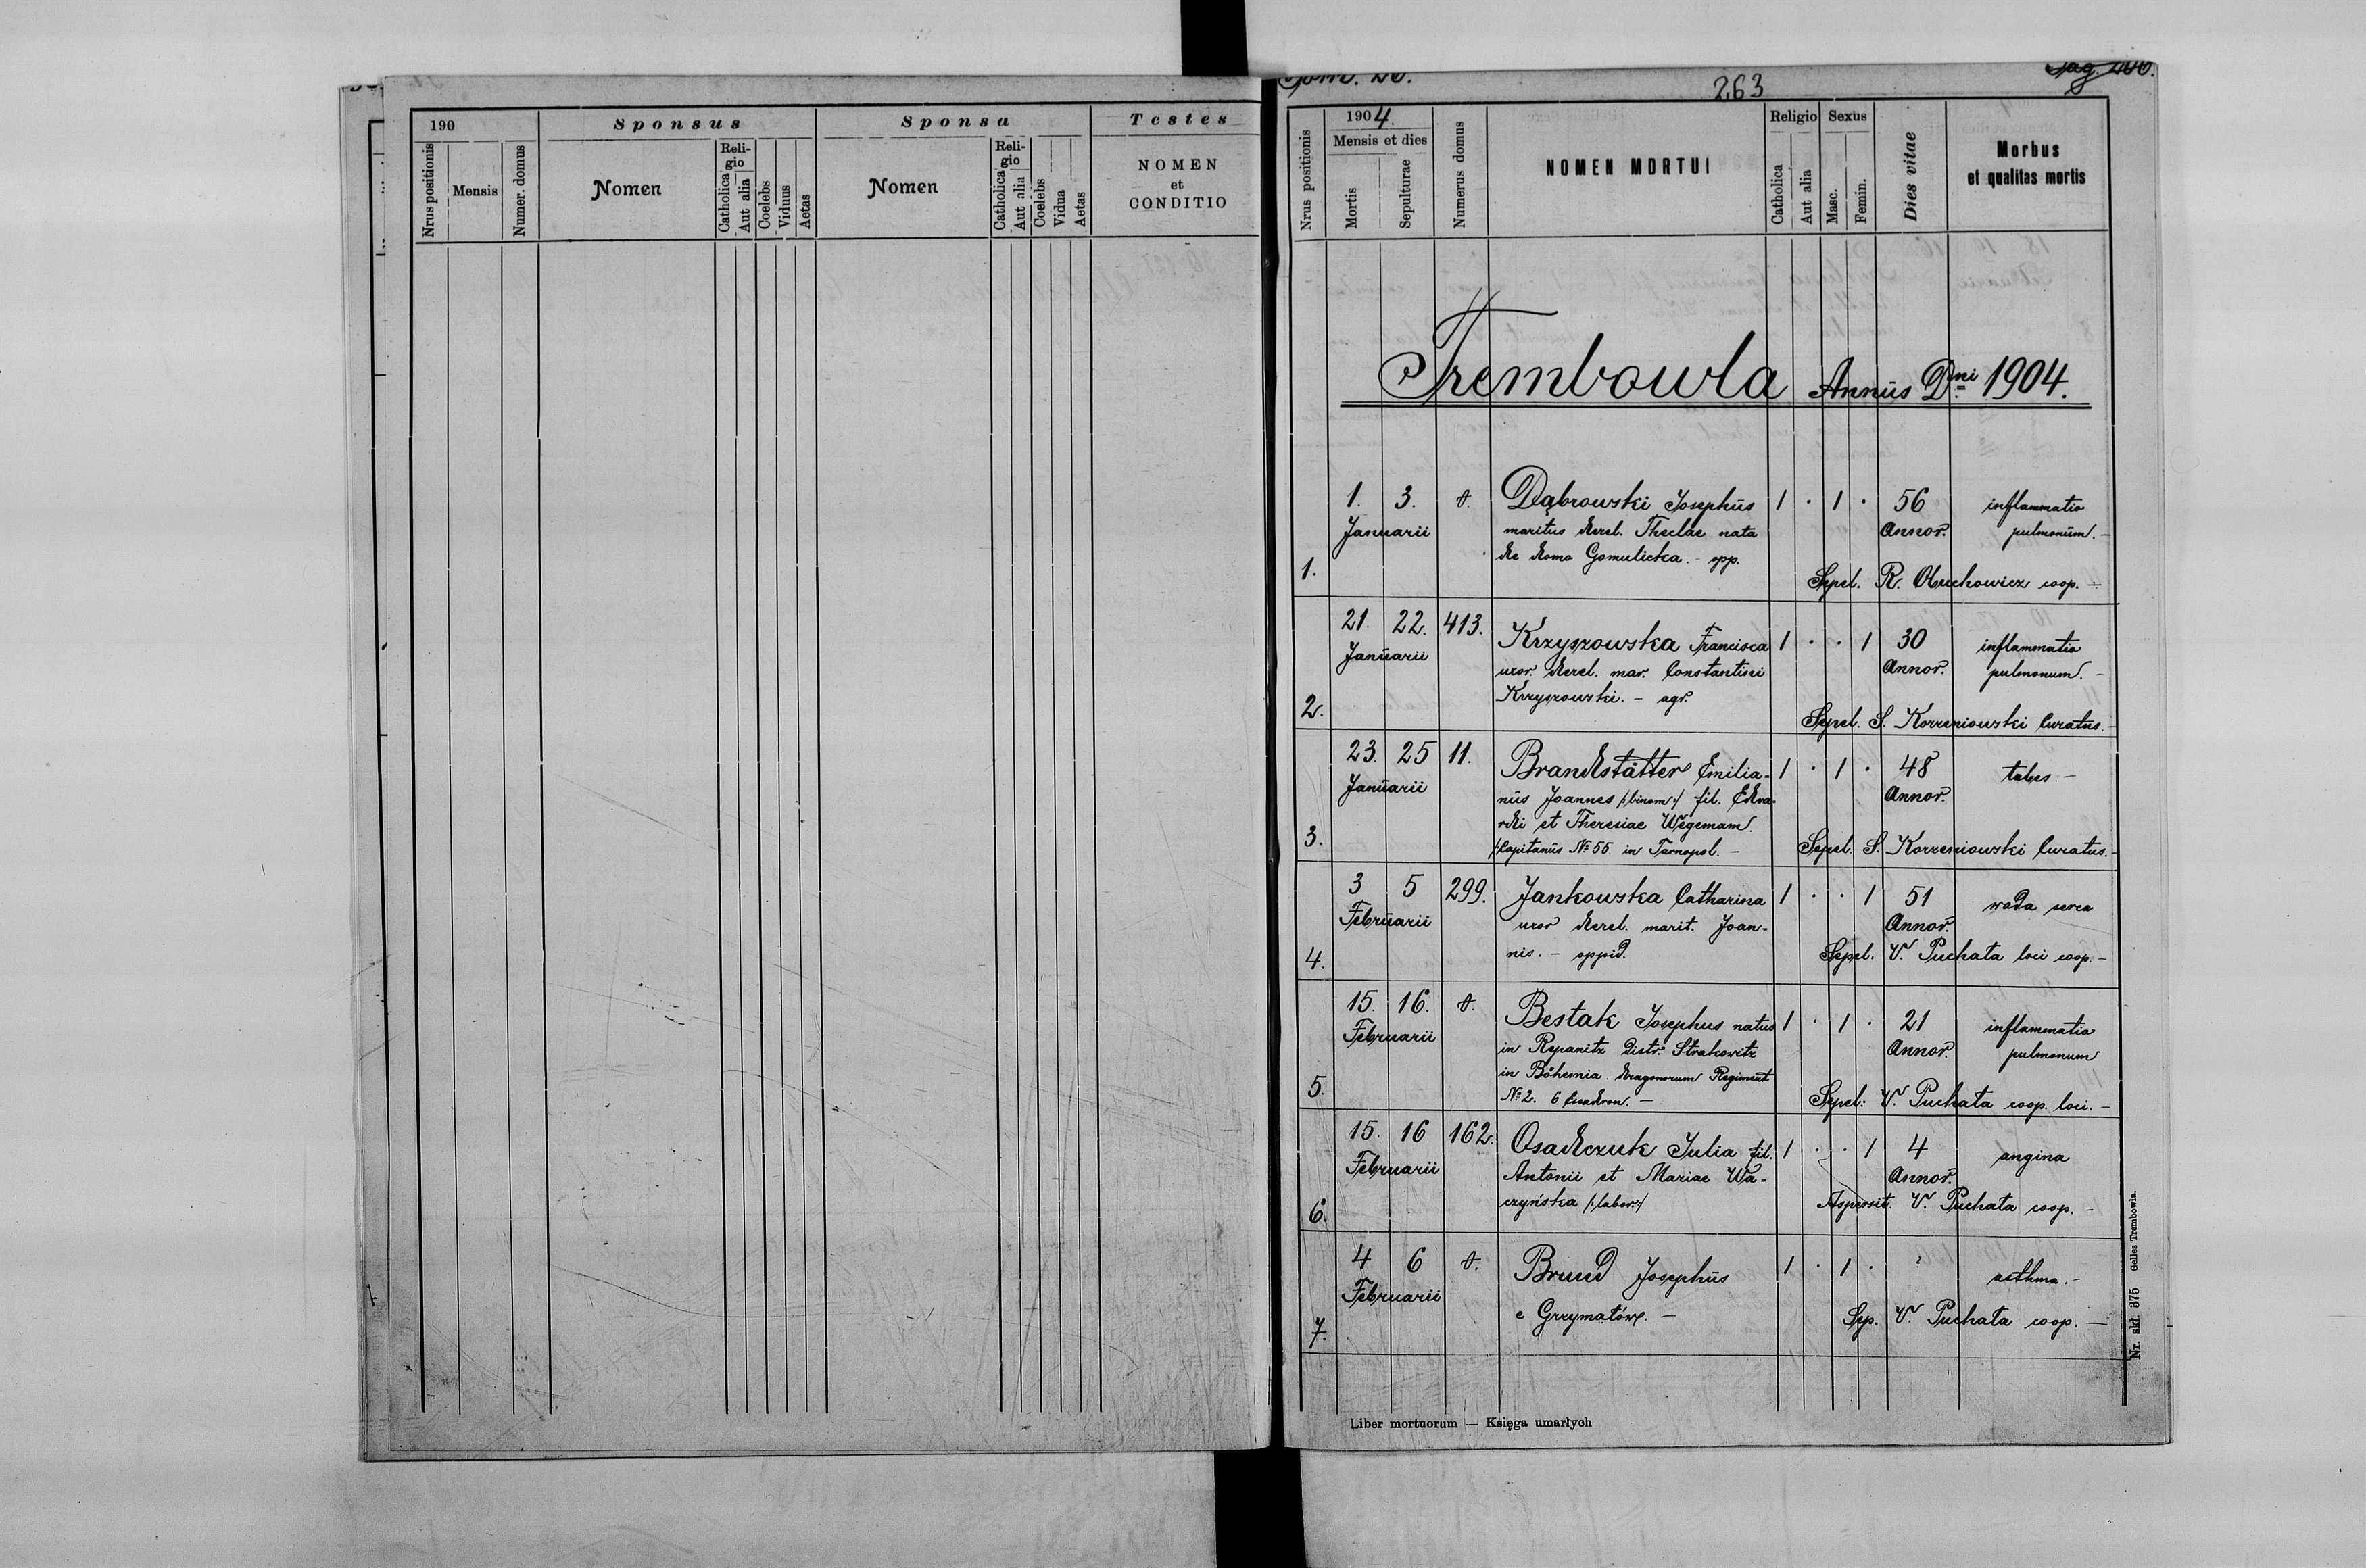 190
Sponsus
Sponsa
Testes
Nrus positionis
Mensis
Numer. domus
Nomen
Religio
Catholica
Aut alia
Coelebs
Viduus
Aetas
Nomen
Religio
Catholica
Aut alia
Coelebs
Vidua
Aetas
NOMEN
et
CONDITIO
Tom. 26.
263
Pag. 206.
Nrus positionis
1904.
Mensis et dies
Mortis
Sepulturae
Numerus domus
NOMEN MORTUI
Religio
Catholica
Aut alia
Sexus
Masc.
Femin.
Dies vitae
Morbus
et qualitas mortis
Trembowla Annus Dni 1904.
1. 3. Dąbrowski Josephus 1 · 1 · 56 inflammatio
Januarii maritus derel. Theclae nata Annor. pulmonum. -
de domo Gomulicka. - opp.
1. Sepel. R. Obuchowicz coop. -
21. 22. 413. Krzyszowska Francisca 1 · · 1 30 inflammatio
Januarii uxor. derel. mar. Constantini Annor. pulmonum. -
Krzyszowski. - agr.
2. Sepel. S. Korzeniowski Curatus. -
23. 25 11. Brandstätter Emilia- 1 · 1 · 48 tabes. -
Januarii nus Joannes /:binom:/ fil. Edua- Annor.
rdi et Theresiae Wegemam.
3. /Capitanus № 55. in Tarnopol. - Sepel. S. Korzeniowski Curatus. -
3 5 299. Jankowska Catharina 1 · · 1 51 wada serca
Februarii uxor derel. marit. Joan- Annor.
4. nis. - oppid. Sepel. V. Puchata loci coop. -
15. 16. Bestak Josephus natus 1 · 1 · 21 inflammatio
Februarii in Repanitz Distr. Strakowitz Annor. pulmonum
in Böhemia. dragonorum Regiment
5. № 2. 6 Esadron. - Sepel: V. Puchata coop. loci. -
15. 16 162. Osadczuk Julia fil. 1 · · 1 4 angina
Februarii Antonii et Mariae Wa- Annor.
6. czyńska /:labor:/ Aspersit. V. Puchata coop. -
4 6 Brud Josephus 1 · 1 · ? asthma. -
Februarii
7. e Grzymałów. - Sep. V. Puchata coop. -
Liber mortuorum — Księga umarłych
Nr. skł. 375 Gelles Trembowla.